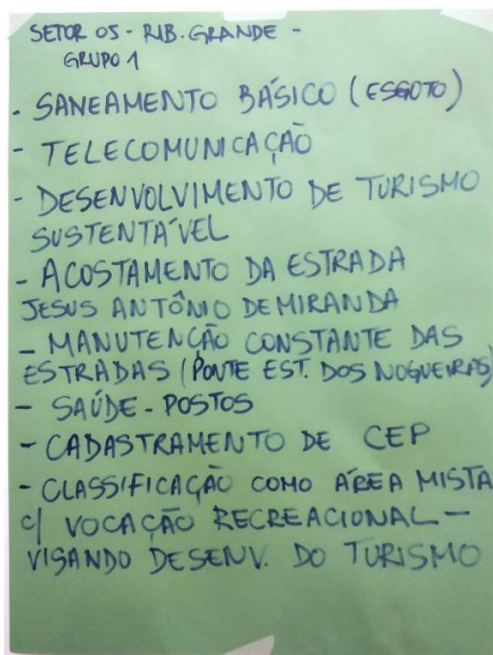 SETOR 05 - RIB. GRANDE -
GRUPO 1
- SANEAMENTO BÁSICO (ESGOTO)
- TELECOMUNICAÇÃO
- DESENVOLVIMENTO DE TURISMO
SUSTENTÁVEL
- ACOSTAMENTO DA ESTRADA
JESUS ANTÔNIO DE MIRANDA
- MANUTENÇÃO CONSTANTE DAS
ESTRADAS (PONTE EST. DOS NOGUEIRAS)
- SAÚDE - POSTOS
- CADASTRAMENTO DE CEP
- CLASSIFICAÇÃO COMO ÁREA MISTA
C/ VOCAÇÃO RECREACIONAL -
VISANDO DESENV. DO TURISMO